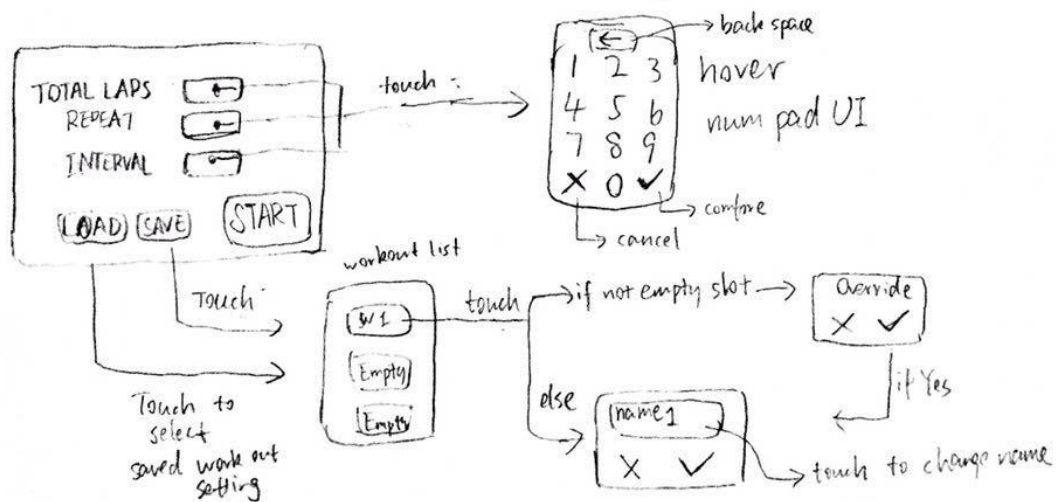 TOTAL LAPS
REPEAT
INTERVAL
LOAD SAVE START
touch :
←
back space
1 2 3
4 5 6
7 8 9
X 0 ✓
hover
num pad UI
confire
cancel
Touch
Touch to
select
saved work out
setting
workout list
W1
Empty
Empty
touch
if not empty slot
Override
X ✓
if Yes
else
name1
X ✓
touch to change name